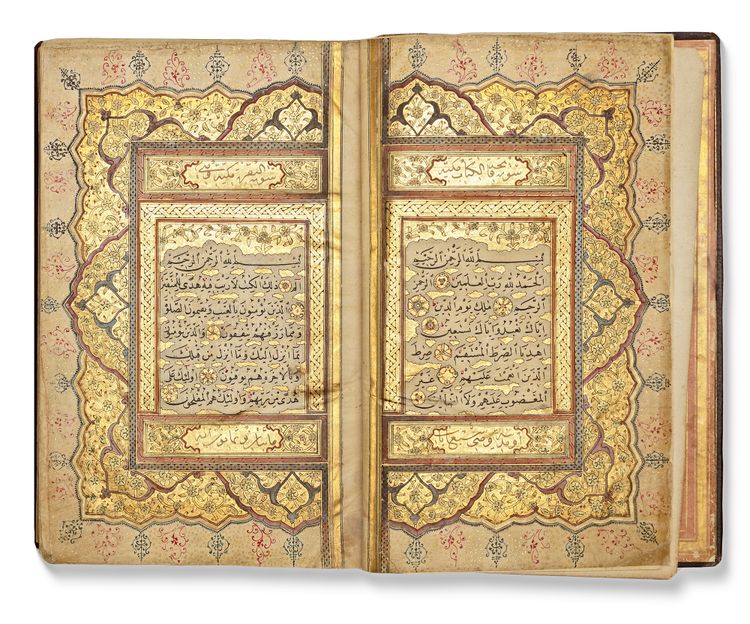 سورة فاتحة الكتاب مكية
بسم الله الرحمن الرحيم
الحمد لله رب العالمين الرحمن
الرحيم ملك يوم الدين
اياك نعبد واياك نستعين
اهدنا الصرط المستقيم صرط
الذين انعمت عليهم غير
المغضوب عليهم ولا الضالين
وهي سبع ايات
سورة البقرة مدنية
بسم الله الرحمن الرحيم
الم ذلك الكتب لا ريب فيه هدى للمتقين
الذين يؤمنون بالغيب ويقيمون الصلوة
ومما رزقنهم ينفقون والذين يؤمنون
بما انزل اليك وما انزل من قبلك
وبالاخرة هم يوقنون اولئك على
هدى من ربهم واولئك هم المفلحون